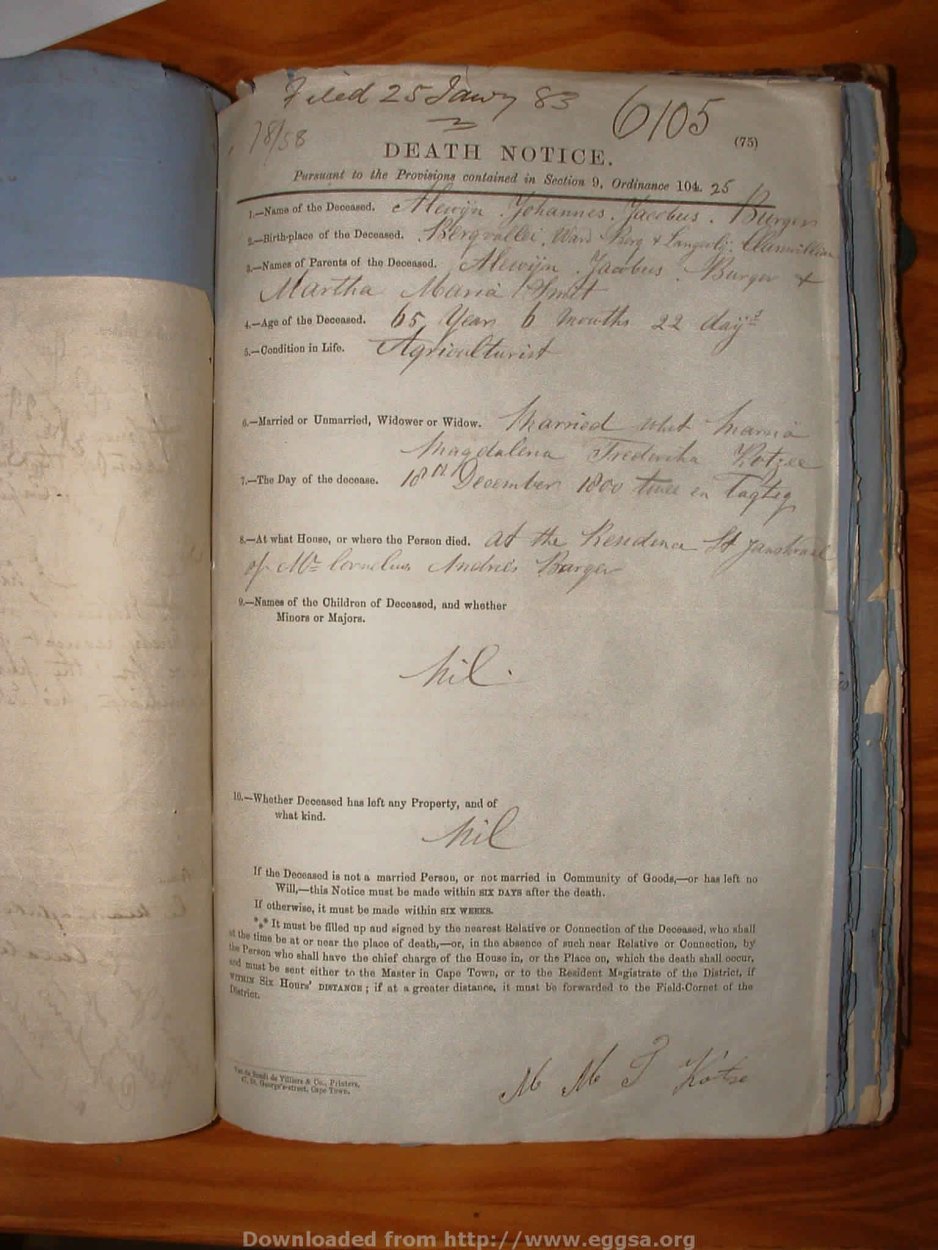 Filed 25 Jany 83
6105
78/58
(75)
DEATH NOTICE.
Pursuant to the Provisions contained in Section 9, Ordinance 104. 25
1.—Name of the Deceased. Alewijn Johannes Jacobus Burger
2.—Birth-place of the Deceased. Bergvallei, Ward Berg & Langevlij Clanwilliam
3.—Names of Parents of the Deceased. Alewijn Jacobus Burger &
Martha Maria Smit
4.—Age of the Deceased. 65 Years 6 Months 22 days
5.—Condition in Life. Agriculturist
6.—Married or Unmarried, Widower or Widow. Married whit Maria
Magdalena Fredericka Kotzee
7.—The Day of the decease. 18th December 1800 twee en Tagteg
8.—At what House, or where the Person died. at the Residence
of Mr Cornelius Andries Burger
9.—Names of the Children of Deceased, and whether
Minors or Majors.
Nil.
10.—Whether Deceased has left any Property, and of
what kind.
Nil
If the Deceased is not a married Person, or not married in Community of Goods,—or has left no
Will,—this Notice must be made within SIX DAYS after the death.
If otherwise, it must be made within SIX WEEKS.
*** It must be filled up and signed by the nearest Relative or Connection of the Deceased, who shall
at the time be at or near the place of death,—or, in the absence of such near Relative or Connection, by
the Person who shall have the chief charge of the House in, or the Place on, which the death shall occur,
and must be sent either to the Master in Cape Town, or to the Resident Magistrate of the District, if
WITHIN SIX HOURS' DISTANCE; if at a greater distance, it must be forwarded to the Field-Cornet of the
District.
M M F Kotze
Van de Sandt de Villiers & Co., Printers,
47, St. George's-street, Cape Town.
Downloaded from http://www.eggsa.org